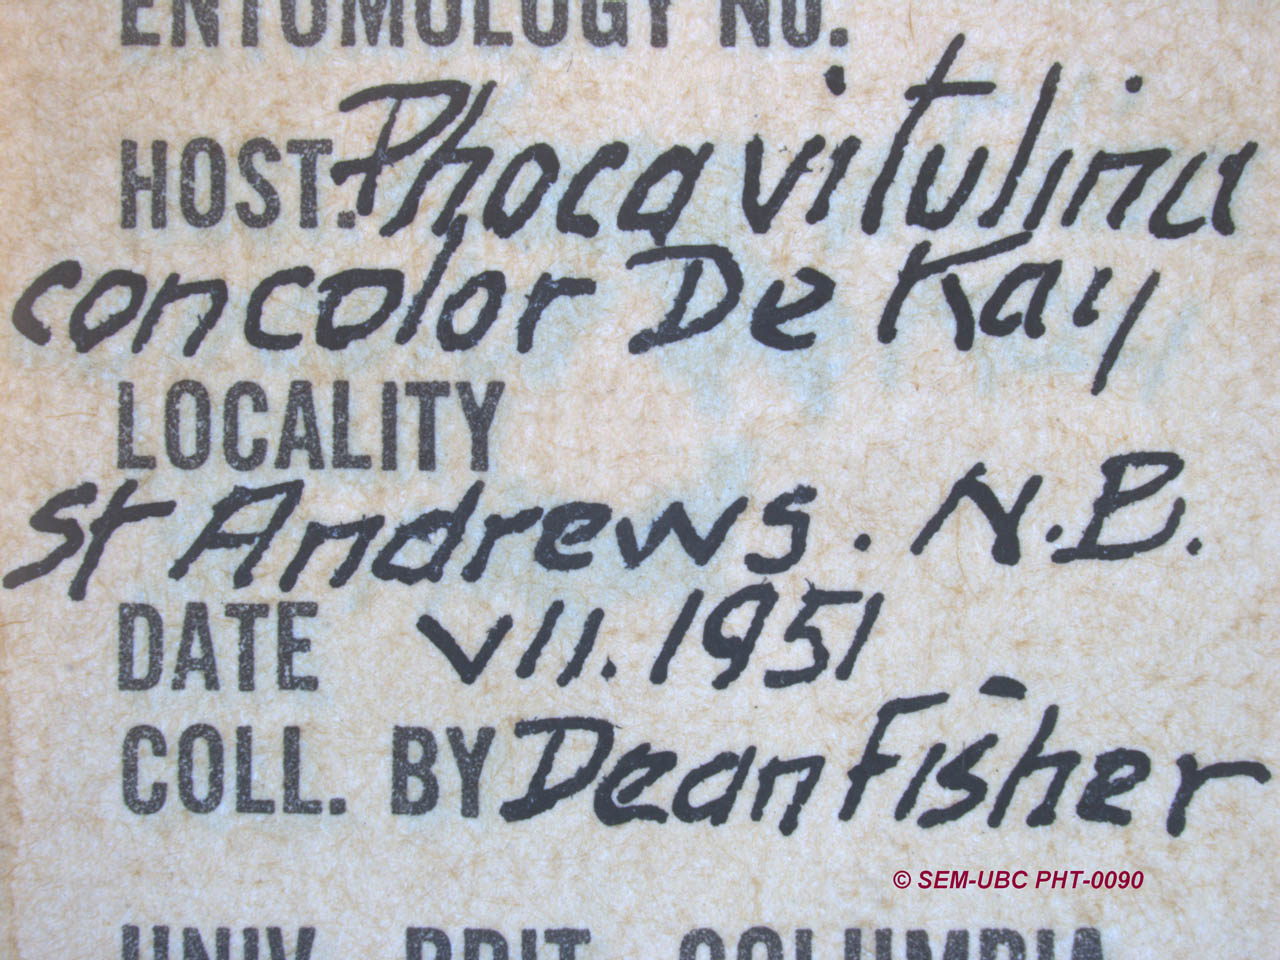 ENTOMOLOGY NO.
HOST. Phoca vitulina
concolor De Kay
LOCALITY
St Andrews. N.B.
DATE VII. 1951
COLL. BY Dean Fisher
© SEM-UBC PHT-0090
UNIV. BRIT. COLUMBIA